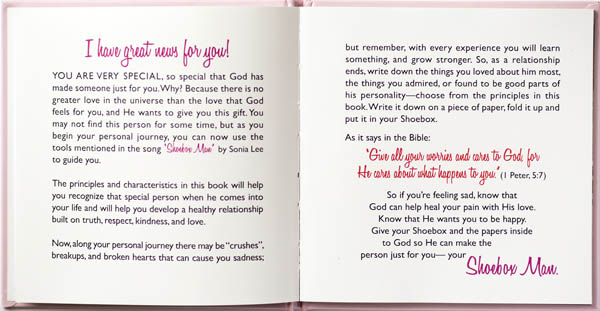 I have great news for you!
YOU ARE VERY SPECIAL, so special that God has
made someone just for you. Why? Because there is no
greater love in the universe than the love that God
feels for you, and He wants to give you this gift. You
may not find this person for some time, but as you
begin your personal journey, you can now use the
tools mentioned in the song "Shoebox Man" by Sonia Lee
to guide you.
The principles and characteristics in this book will help
you recognize that special person when he comes into
your life and will help you develop a healthy relationship
built on truth, respect, kindness, and love.
Now, along your personal journey there may be “crushes”,
breakups, and broken hearts that can cause you sadness;
but remember, with every experience you will learn
something, and grow stronger. So, as a relationship
ends, write down the things you loved about him most,
the things you admired, or found to be good parts of
his personality—choose from the principles in this
book. Write it down on a piece of paper, fold it up and
put it in your Shoebox.
As it says in the Bible:
"Give all your worries and cares to God, for
He cares about what happens to you." (1 Peter, 5:7)
So if you’re feeling sad, know that
God can help heal your pain with His love.
Know that He wants you to be happy.
Give your Shoebox and the papers inside
to God so He can make the
person just for you— your
Shoebox Man.